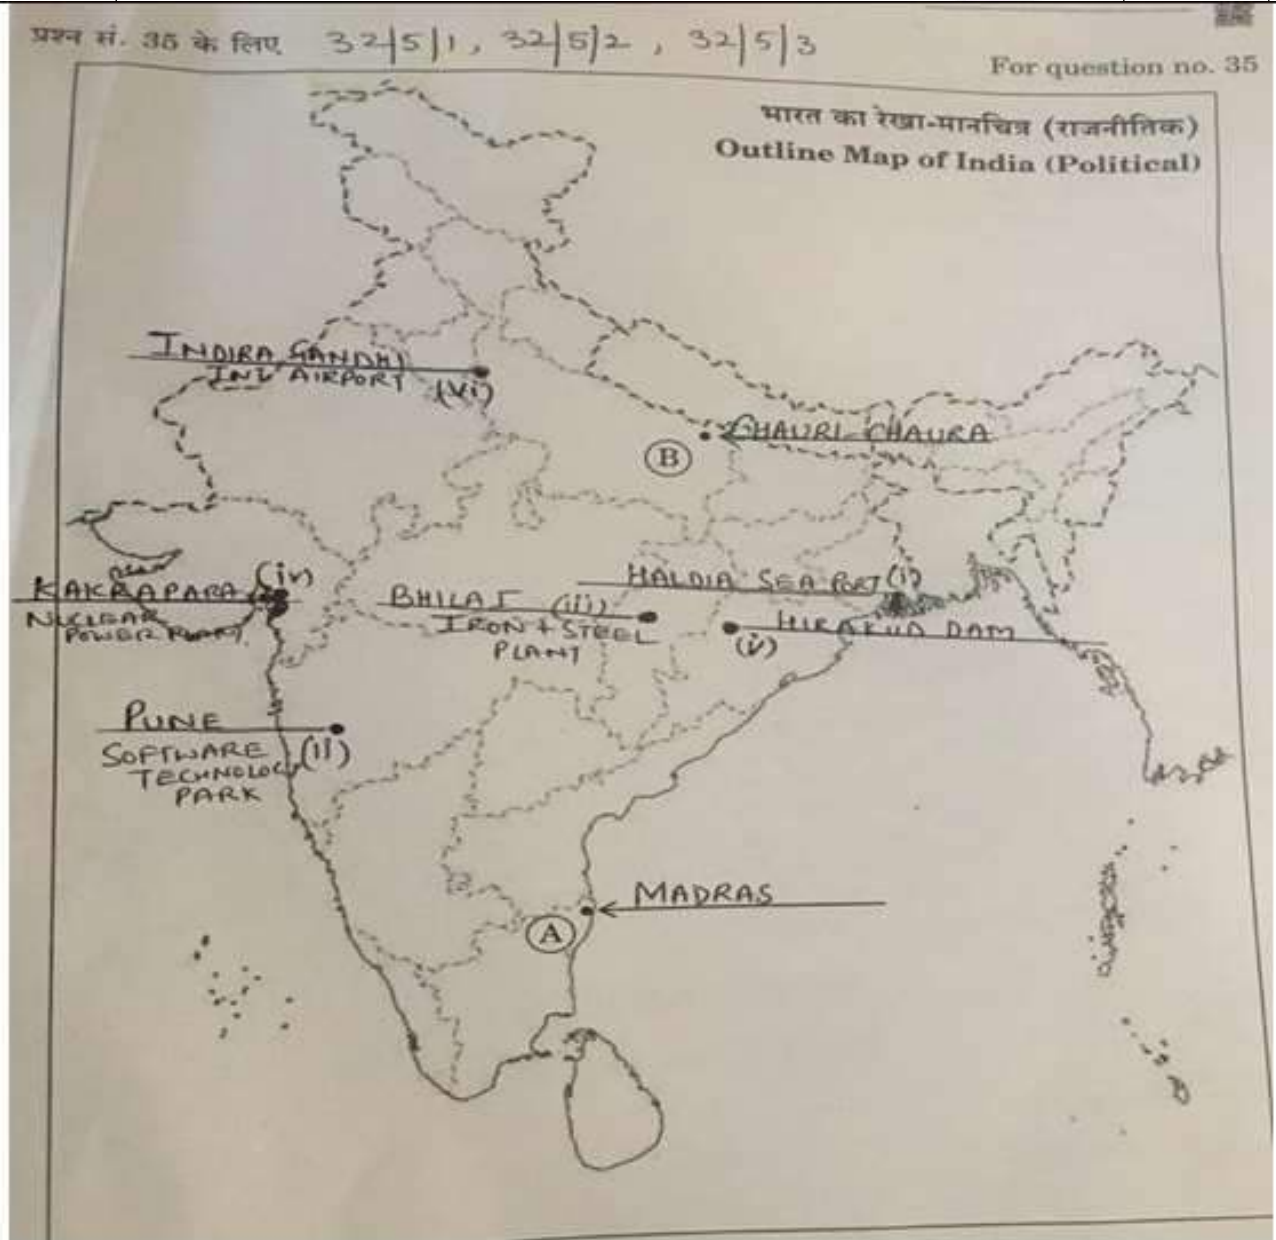 प्रश्न सं. 35 के लिए 32|5|1, 32|5|2, 32|5|3
For question no. 35
भारत का रेखा-मानचित्र (राजनीतिक)
Outline Map of India (Political)
INDIRA GANDHI
INL AIRPORT (vi)
CHAURI-CHAURA
B
KAKRAPARA (iv)
NUCLEAR
POWER PLANT
BHILAI (iii)
IRON + STEEL
PLANT
HALDIA SEA PORT (i)
HIRAKUD DAM
(v)
PUNE
SOFTWARE (ii)
TECHNOLOGY
PARK
MADRAS
A